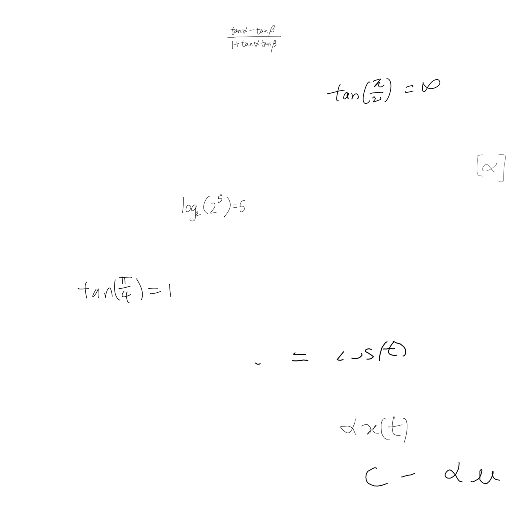 \frac{\tan\alpha - \tan\beta}{1 + \tan\alpha \tan\beta}
tan(\frac{\pi}{2}) = ∞
[α]
log_2(2^5)=5
tan(\frac{π}{4}) = 1
= cos(t)
αx(t)
c - αu